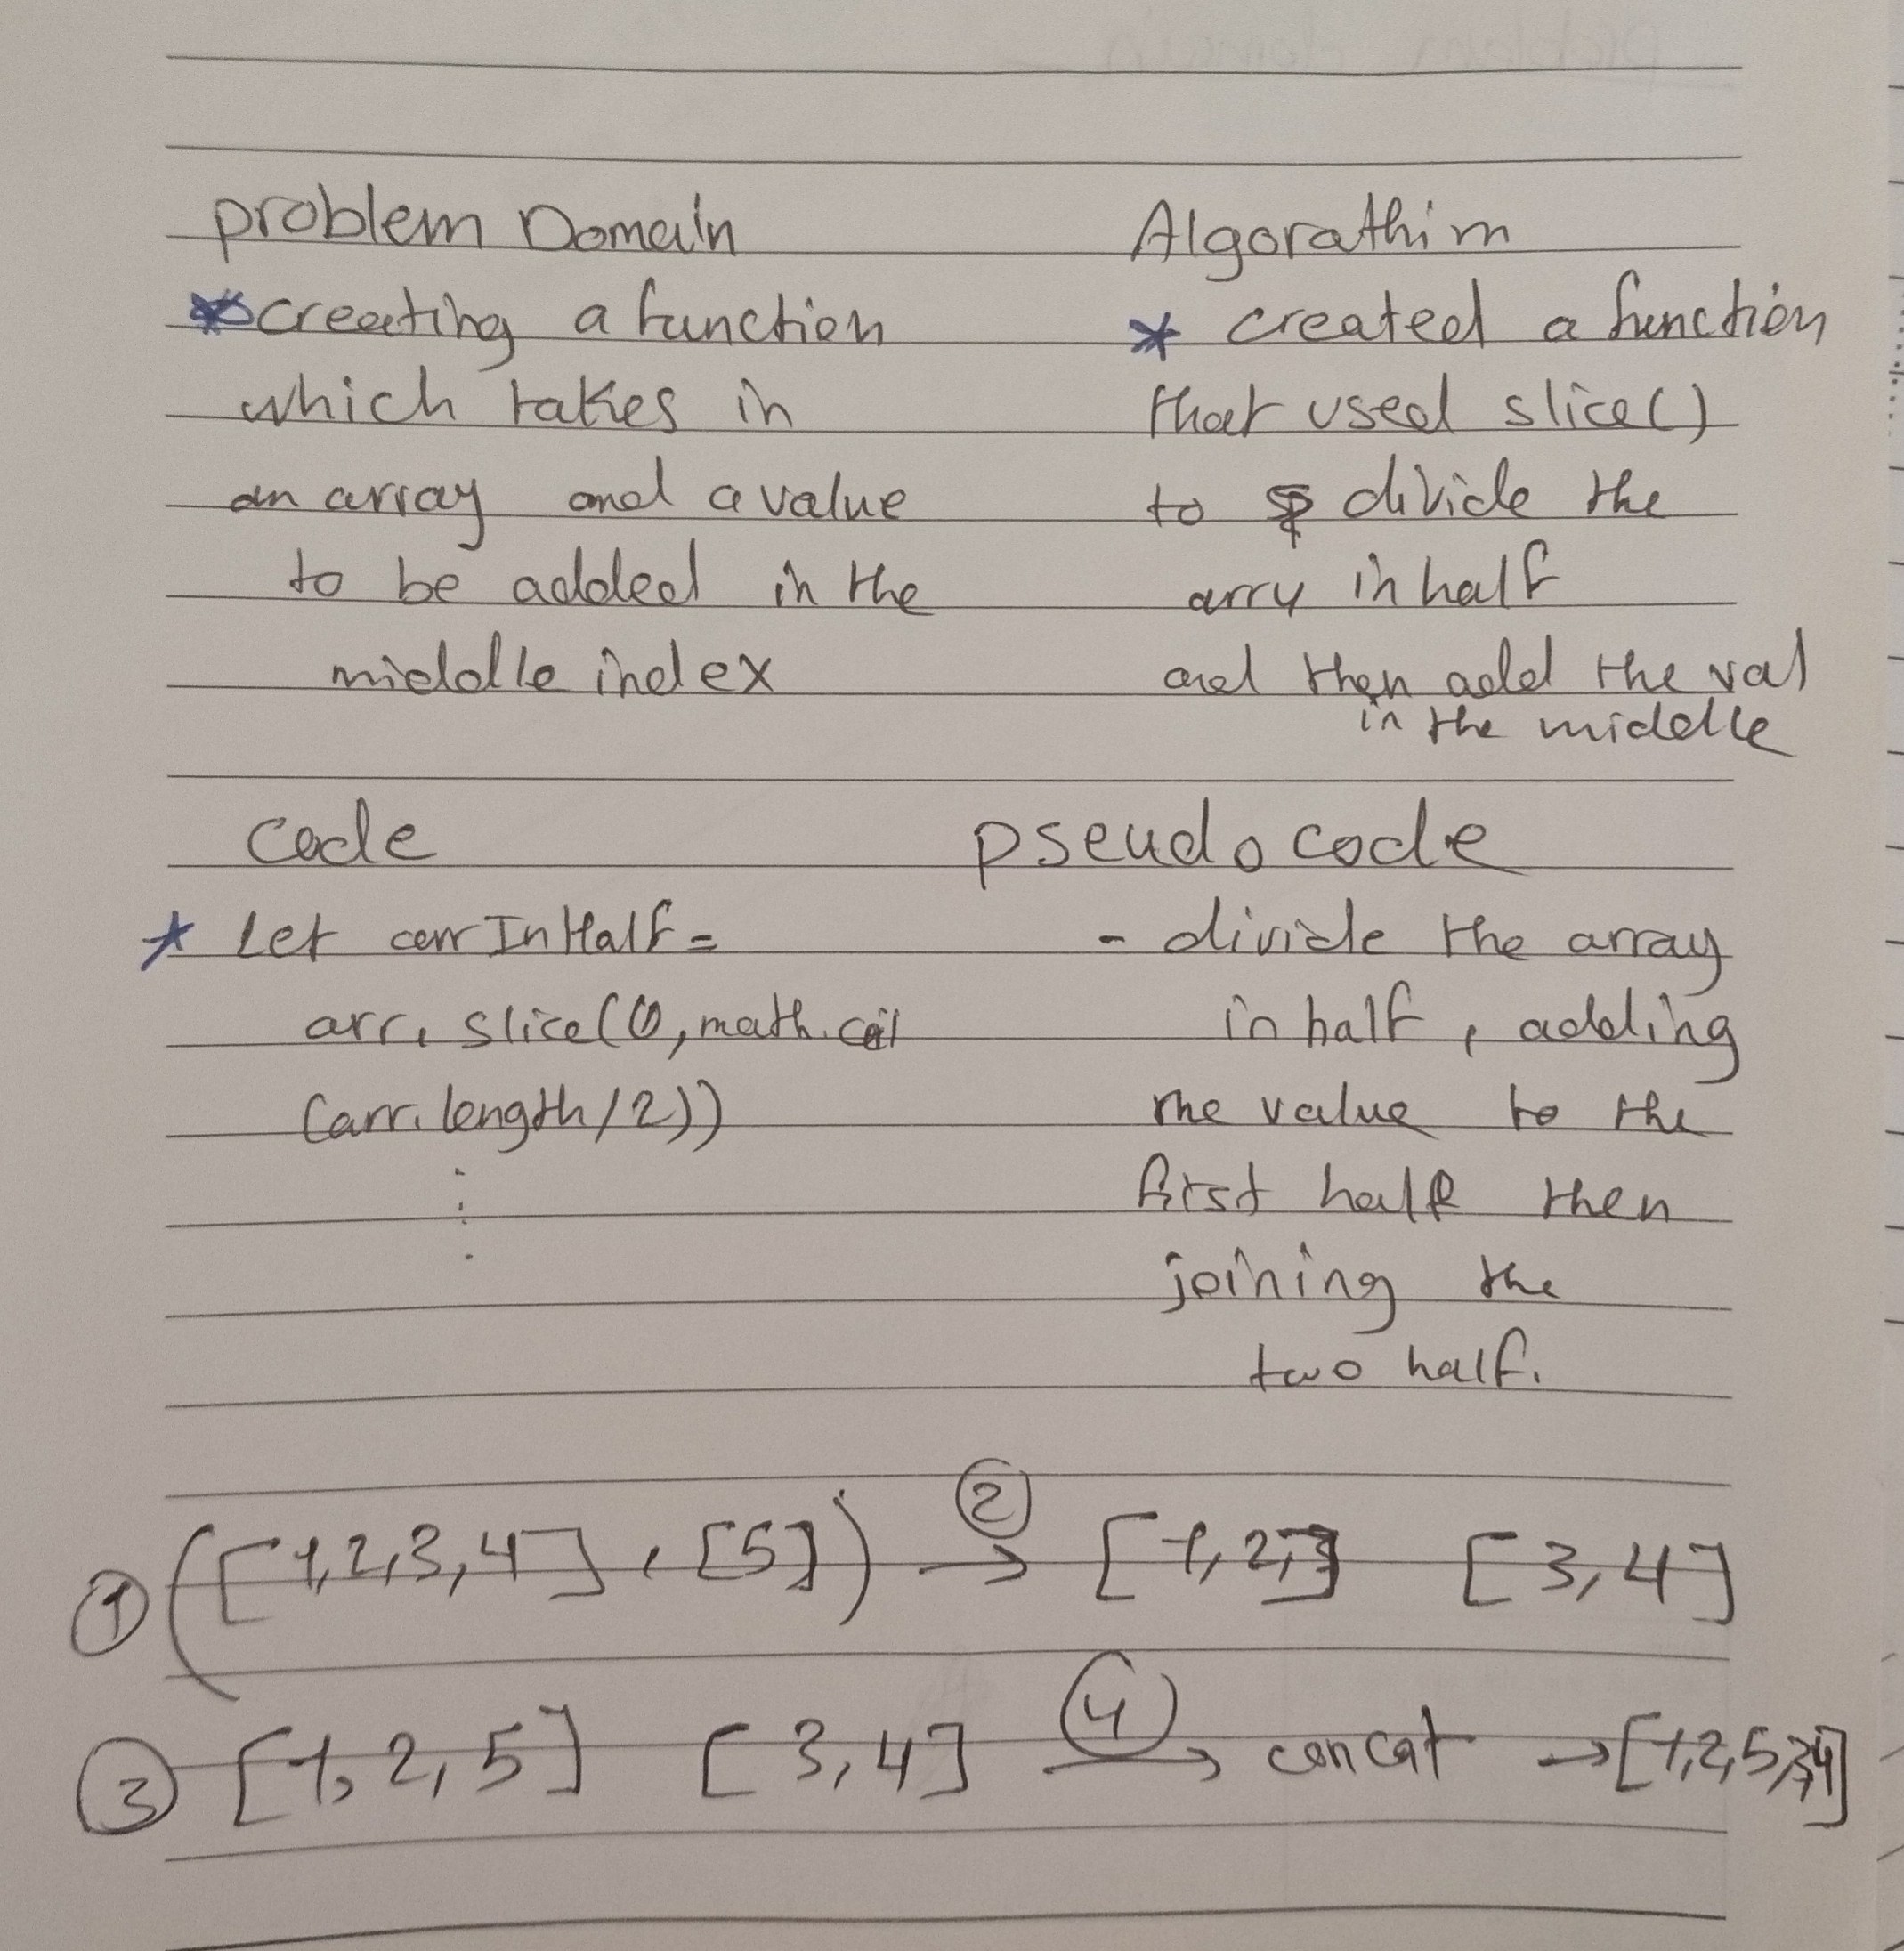 problem Domain
*creating a function
which takes in
an array and a value
to be added in the
middle index
Algorathim
* created a function
that used slice()
to divide the
arry in half
and then add the val
in the middle
code
* Let arr InHalf =
arr. slice(0, math.ceil
(arr. length/2))
pseudo code
- divide the array
in half, adding
the value to the
first half then
joining the
two half.
1 ([1,2,3,4], [5]) 2→ [1,2] [3,4]
3 [1,2,5] [3,4] 4→ concat → [1,2,5,3,4]